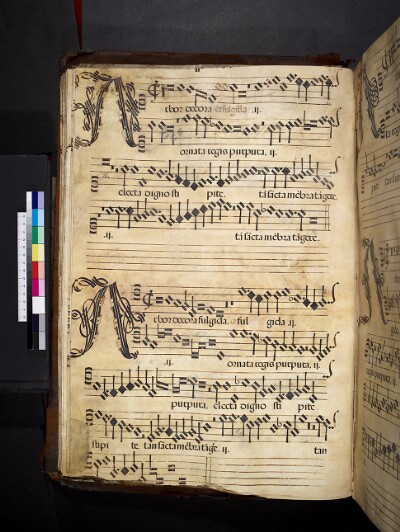 Arbor decora et fulgida .ij.
ornata regis purpura. ij.
electa digno sti pite. tã sãcta mẽbra tãgere
.ij. tã sãcta mẽbra tãgere.
Arbor decora fulgida. ful gida .ij.
.ij. ornata regis purpura. ij.
purpura. electa digno sti pite
stipi te tan sãcta mẽbra tãge. ij. tan